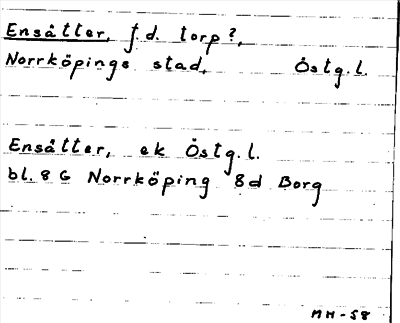 Ensätter, f.d. torp?,
Norrköpings stad, Östg.l.
Ensätter, ek Östg.l.
bl. 8 G Norrköping 8d Borg
MH-58